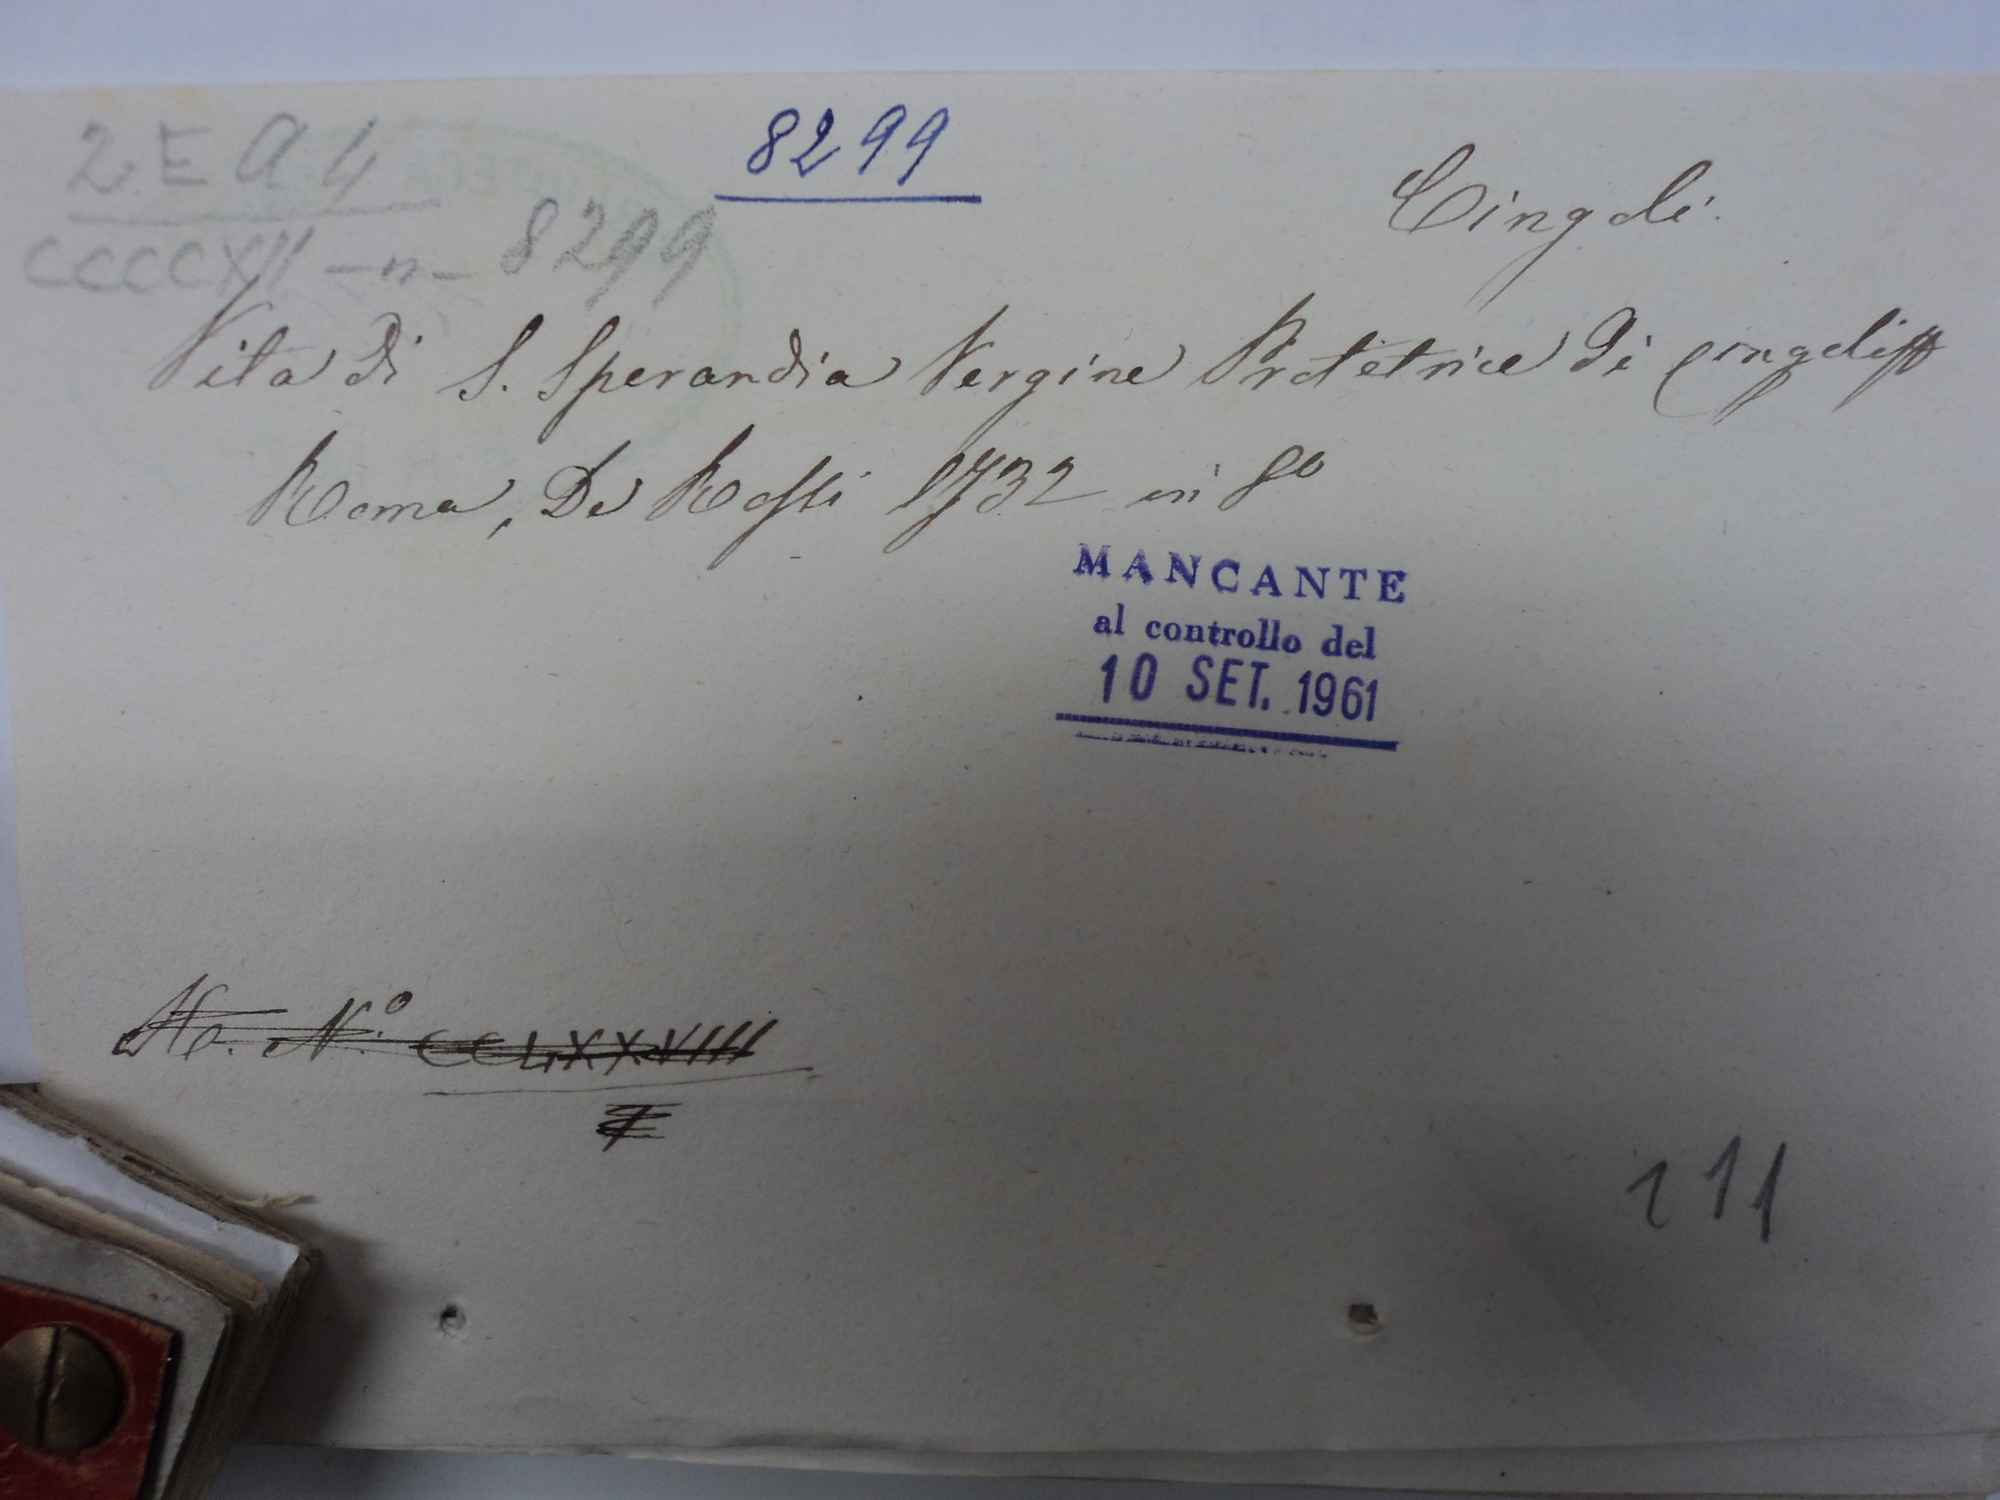 2 E A 4
8299
CCCCXII - n - 8299
Cingoli.
Vita di S. Sperandia Vergine Protetrice di Cingoli
Roma, De Rossi 1732 in 8º
MANCANTE
al controllo del
10 SET. 1961
Nº. CCLXXVIII
111